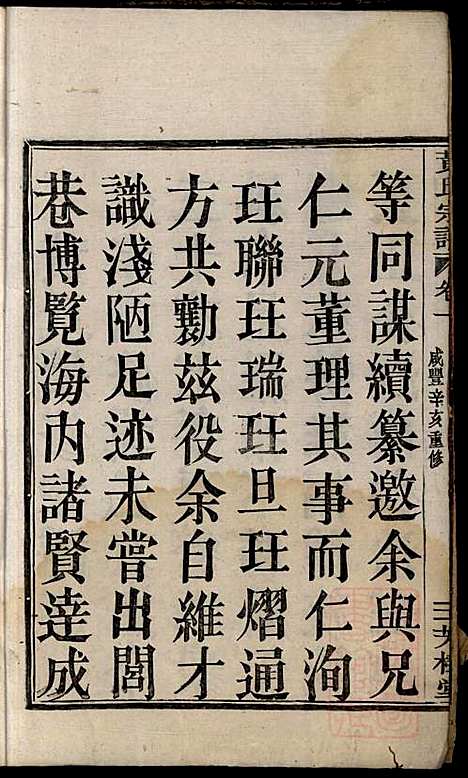 黃氏宗譜 卷一 咸豐辛亥重修
等同謀續纂邀余與兄
仁元董理其事而仁洵
玨聯玨瑞玨旦玨熠通
方共勷兹役余自維才
識淺陋足迹未嘗出閭
巷博覽海内諸賢達成